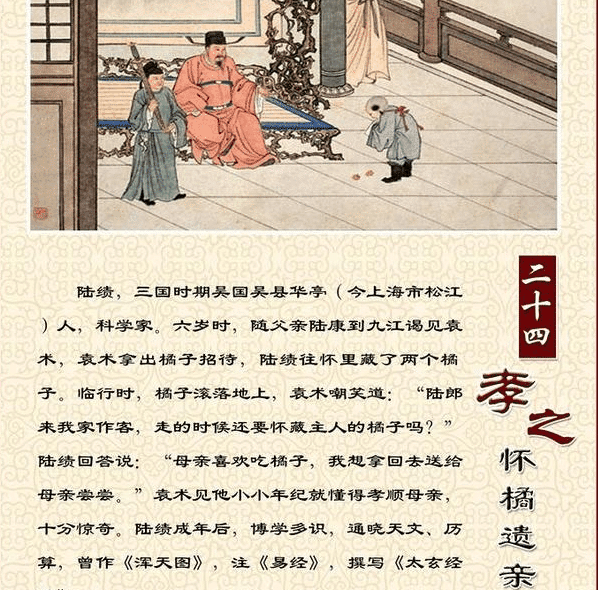 二十四
孝之
怀橘遗亲
陆绩，三国时期吴国吴县华亭（今上海市松江
）人，科学家。六岁时，随父亲陆康到九江谒见袁
术，袁术拿出橘子招待，陆绩往怀里藏了两个橘
子。临行时，橘子滚落地上，袁术嘲笑道：“陆郎
来我家作客，走的时候还要怀藏主人的橘子吗？”
陆绩回答说：“母亲喜欢吃橘子，我想拿回去送给
母亲尝尝。”袁术见他小小年纪就懂得孝顺母亲，
十分惊奇。陆绩成年后，博学多识，通晓天文、历
算，曾作《浑天图》，注《易经》，撰写《太玄经